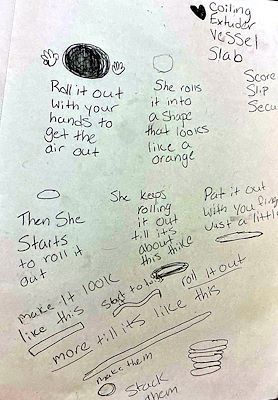 Coiling
Extuder
Vessel
Slab
Score
Slip
Secu
Roll it out
with your
hands to
get the
air out
She rolls
it into
a shape
that looks
like a
orange
Then She
Starts
to roll it
out
She keeps
rolling
it out
till its
about
this thike
Pat it out
with you fing
Just a little
make It look
like this
Start to
roll it out
more till its like this
make them
Stack
them